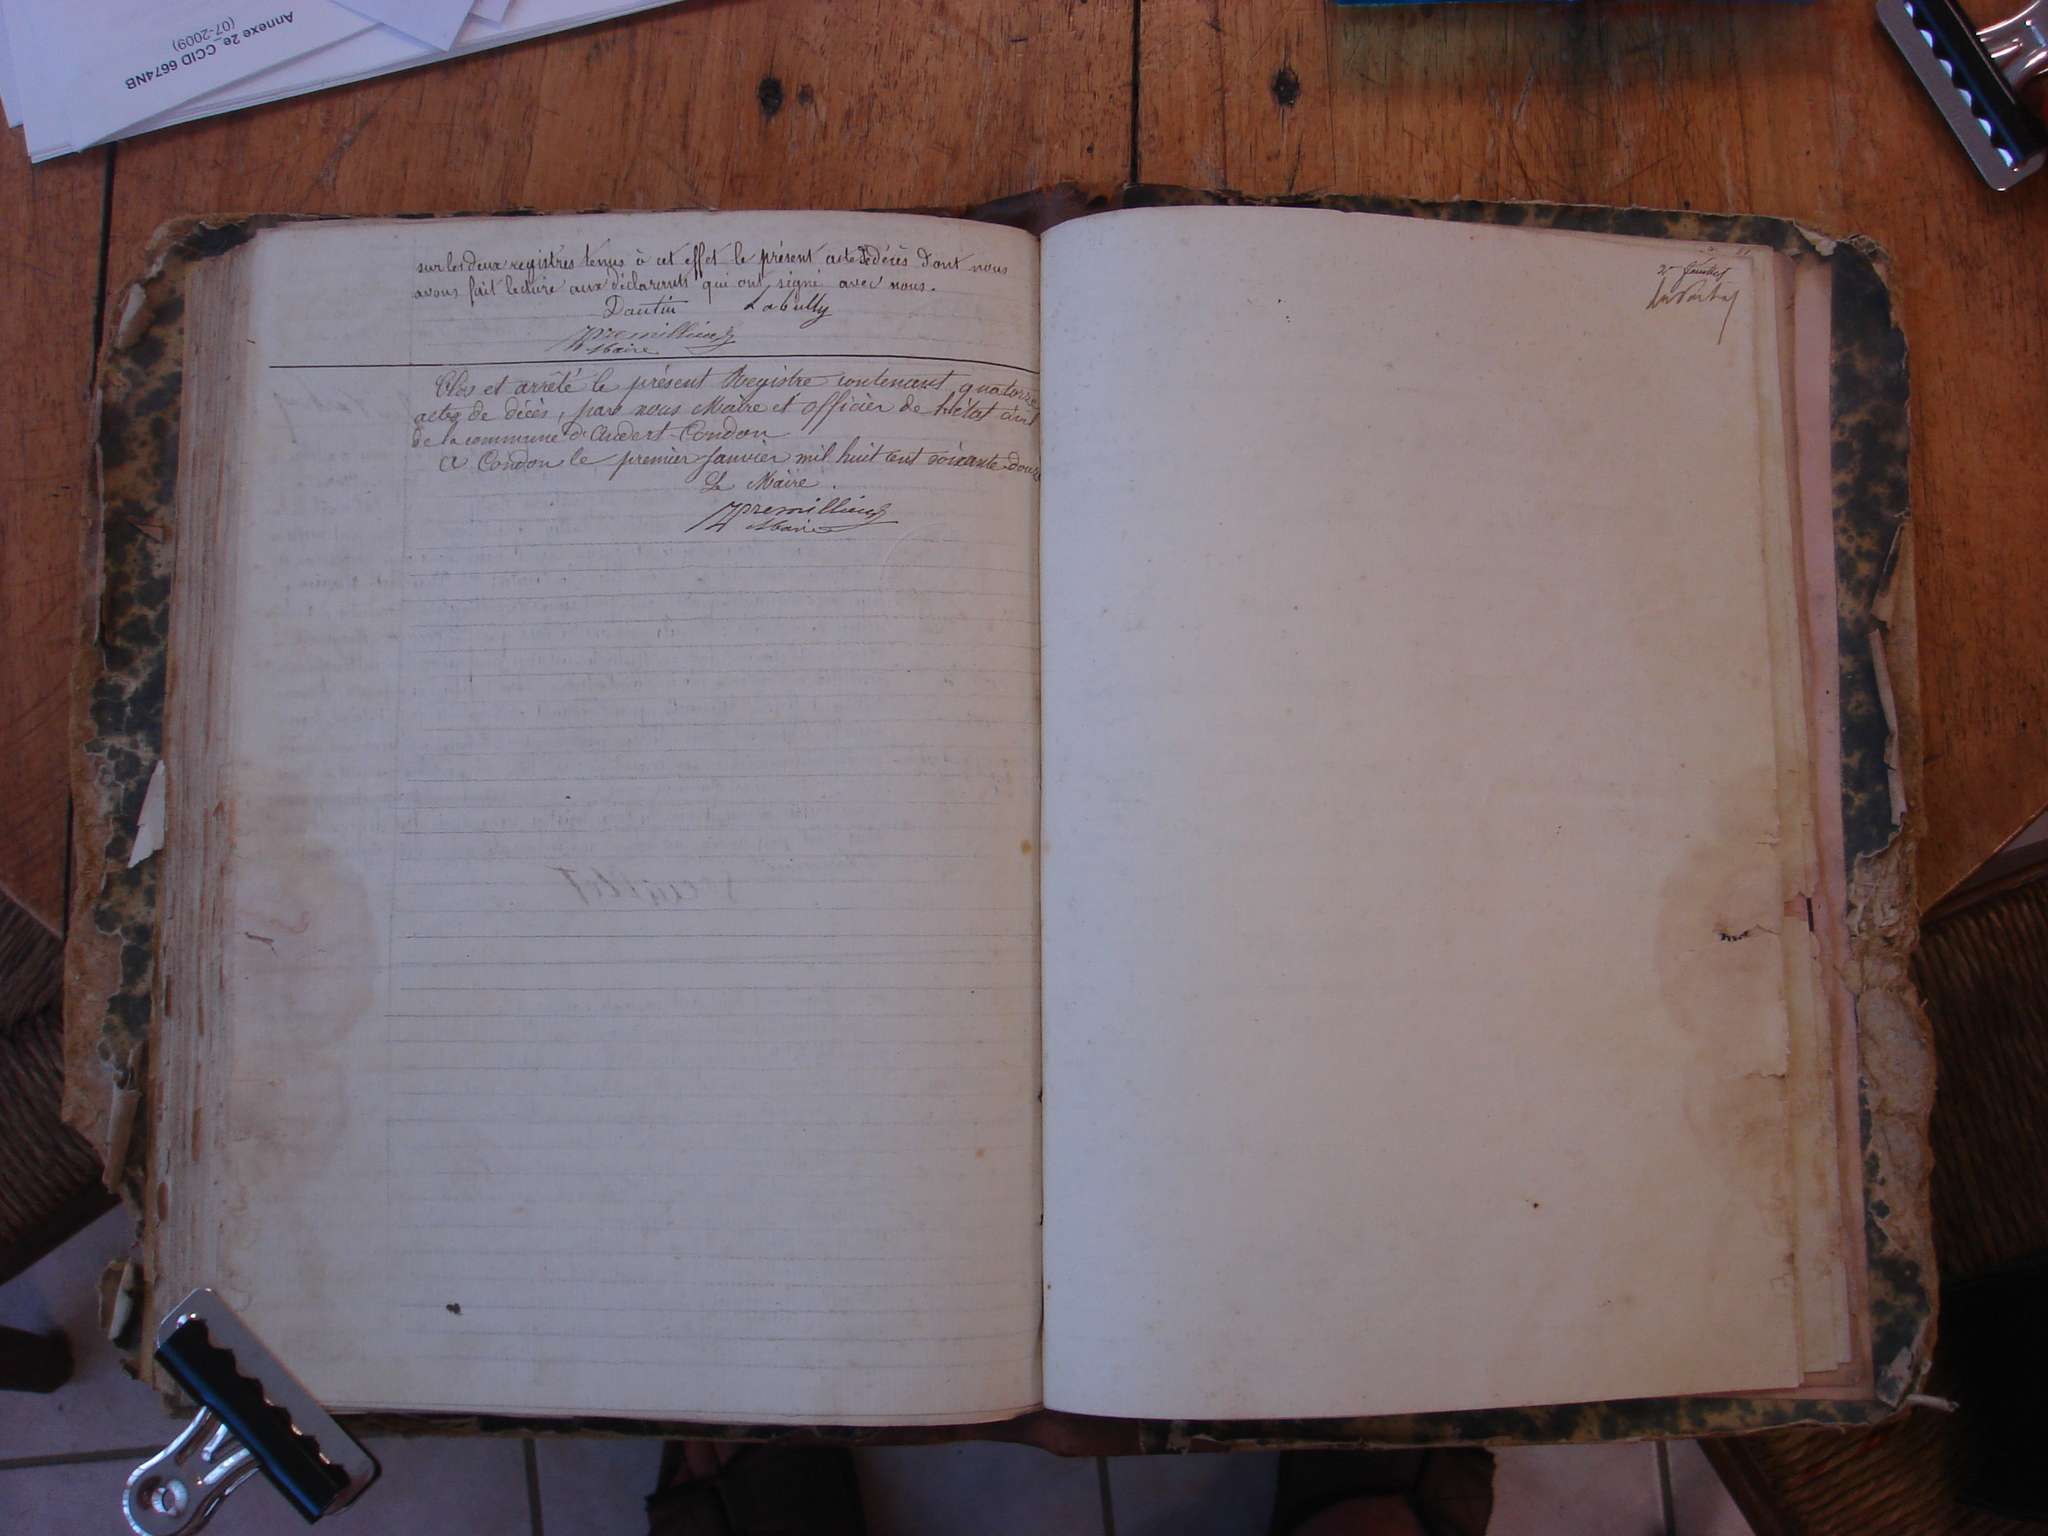 Annexe 2e_CCID 6674NB
(07-2009)
sur les deux registres tenus à cet effet le présent acte de décès dont nous
avons fait lecture aux déclarants qui ont signé avec nous.
Dantin Labully
Premillieu
Maire
Clos et arrêté le présent Registre contenant quatorze
actes de décès, par nous Maire et officier de l'état civil
de la commune d'Andert-Condon
A Condon le premier Janvier mil huit cent soixante-douze
Le Maire.
Premillieu
Maire